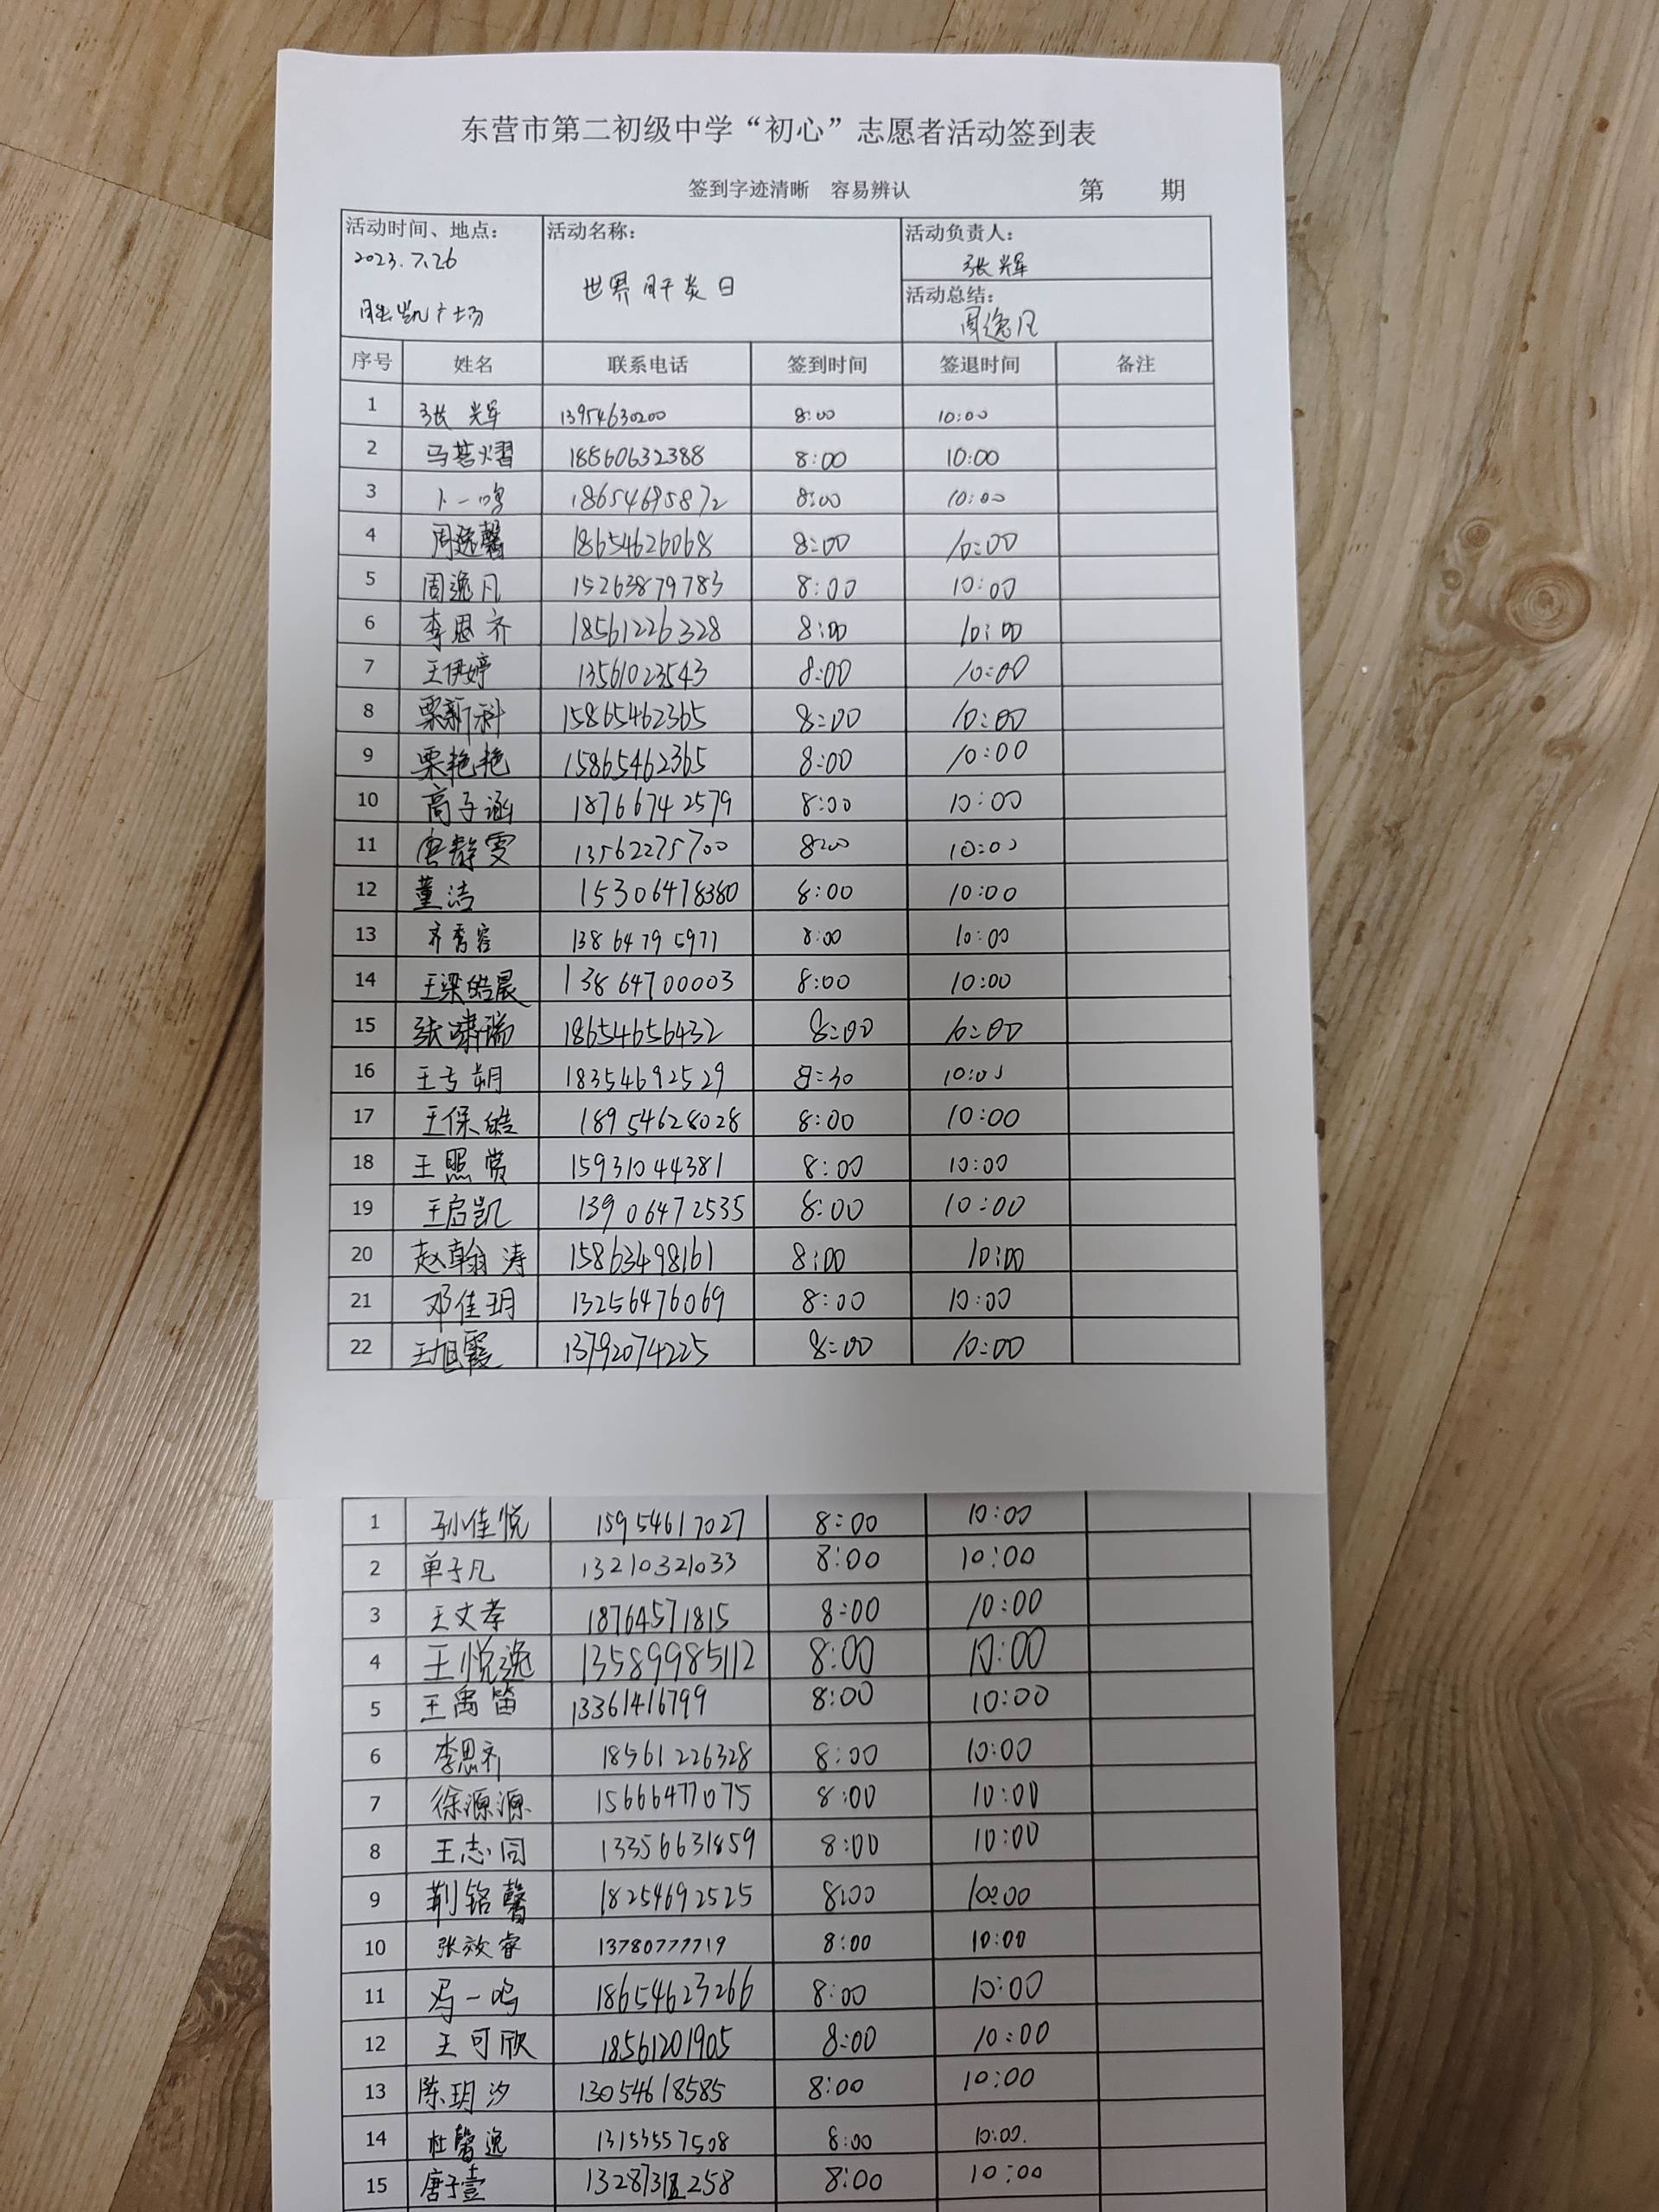 东营市第二初级中学“初心”志愿者活动签到表
签到字迹清晰 容易辨认 第 期
活动时间、地点: 活动名称: 活动负责人:
2023.7.26 世界肝炎日 张辉
胜凯广场 活动总结:
周逸凡
序号 姓名 联系电话 签到时间 签退时间 备注
1 张辉 13954630200 8:00 10:00
2 18560632388 8:00 10:00
3 卜一鸣 18654695872 8:00 10:00
4 周逸馨 18654626068 8:00 10:00
5 周逸凡 15263879783 8:00 10:00
6 李思齐 18561226328 8:00 10:00
7 王伊婷 13561023543 8:00 10:00
8 栗新科 15865462365 8:00 10:00
9 栗艳艳 15865462365 8:00 10:00
10 高子涵 18766742579 8:00 10:00
11 唐静雯 13562275700 8:00 10:00
12 董洁 15306478380 8:00 10:00
13 齐秀容 13864795977 8:00 10:00
14 王梁皓晨 13864700003 8:00 10:00
15 张啸瑞 18654656432 8:00 10:00
16 18354692529 8:30 10:00
17 王保皓 18954628028 8:00 10:00
18 王照赏 15931044381 8:00 10:00
19 王启凯 13906472535 8:00 10:00
20 赵翰涛 15863498161 8:00 10:00
21 邓佳玥 13256476069 8:00 10:00
22 王旭霞 13792074225 8:00 10:00
1 孙佳悦 15954617027 8:00 10:00
2 单子凡 13210321033 8:00 10:00
3 王文孝 18764571815 8:00 10:00
4 王悦逸 13589985112 8:00 10:00
5 王禹笛 13361416799 8:00 10:00
6 李思齐 18561226328 8:00 10:00
7 徐源源 15666477075 8:00 10:00
8 王志同 13356631859 8:00 10:00
9 荆铭馨 18254692525 8:00 10:00
10 张效睿 13780777719 8:00 10:00
11 冯一鸣 18654623266 8:00 10:00
12 王可欣 18561201905 8:00 10:00
13 陈玥汐 13054618585 8:00 10:00
14 杜馨逸 13153557508 8:00 10:00.
15 唐子壹 8:00 10:00